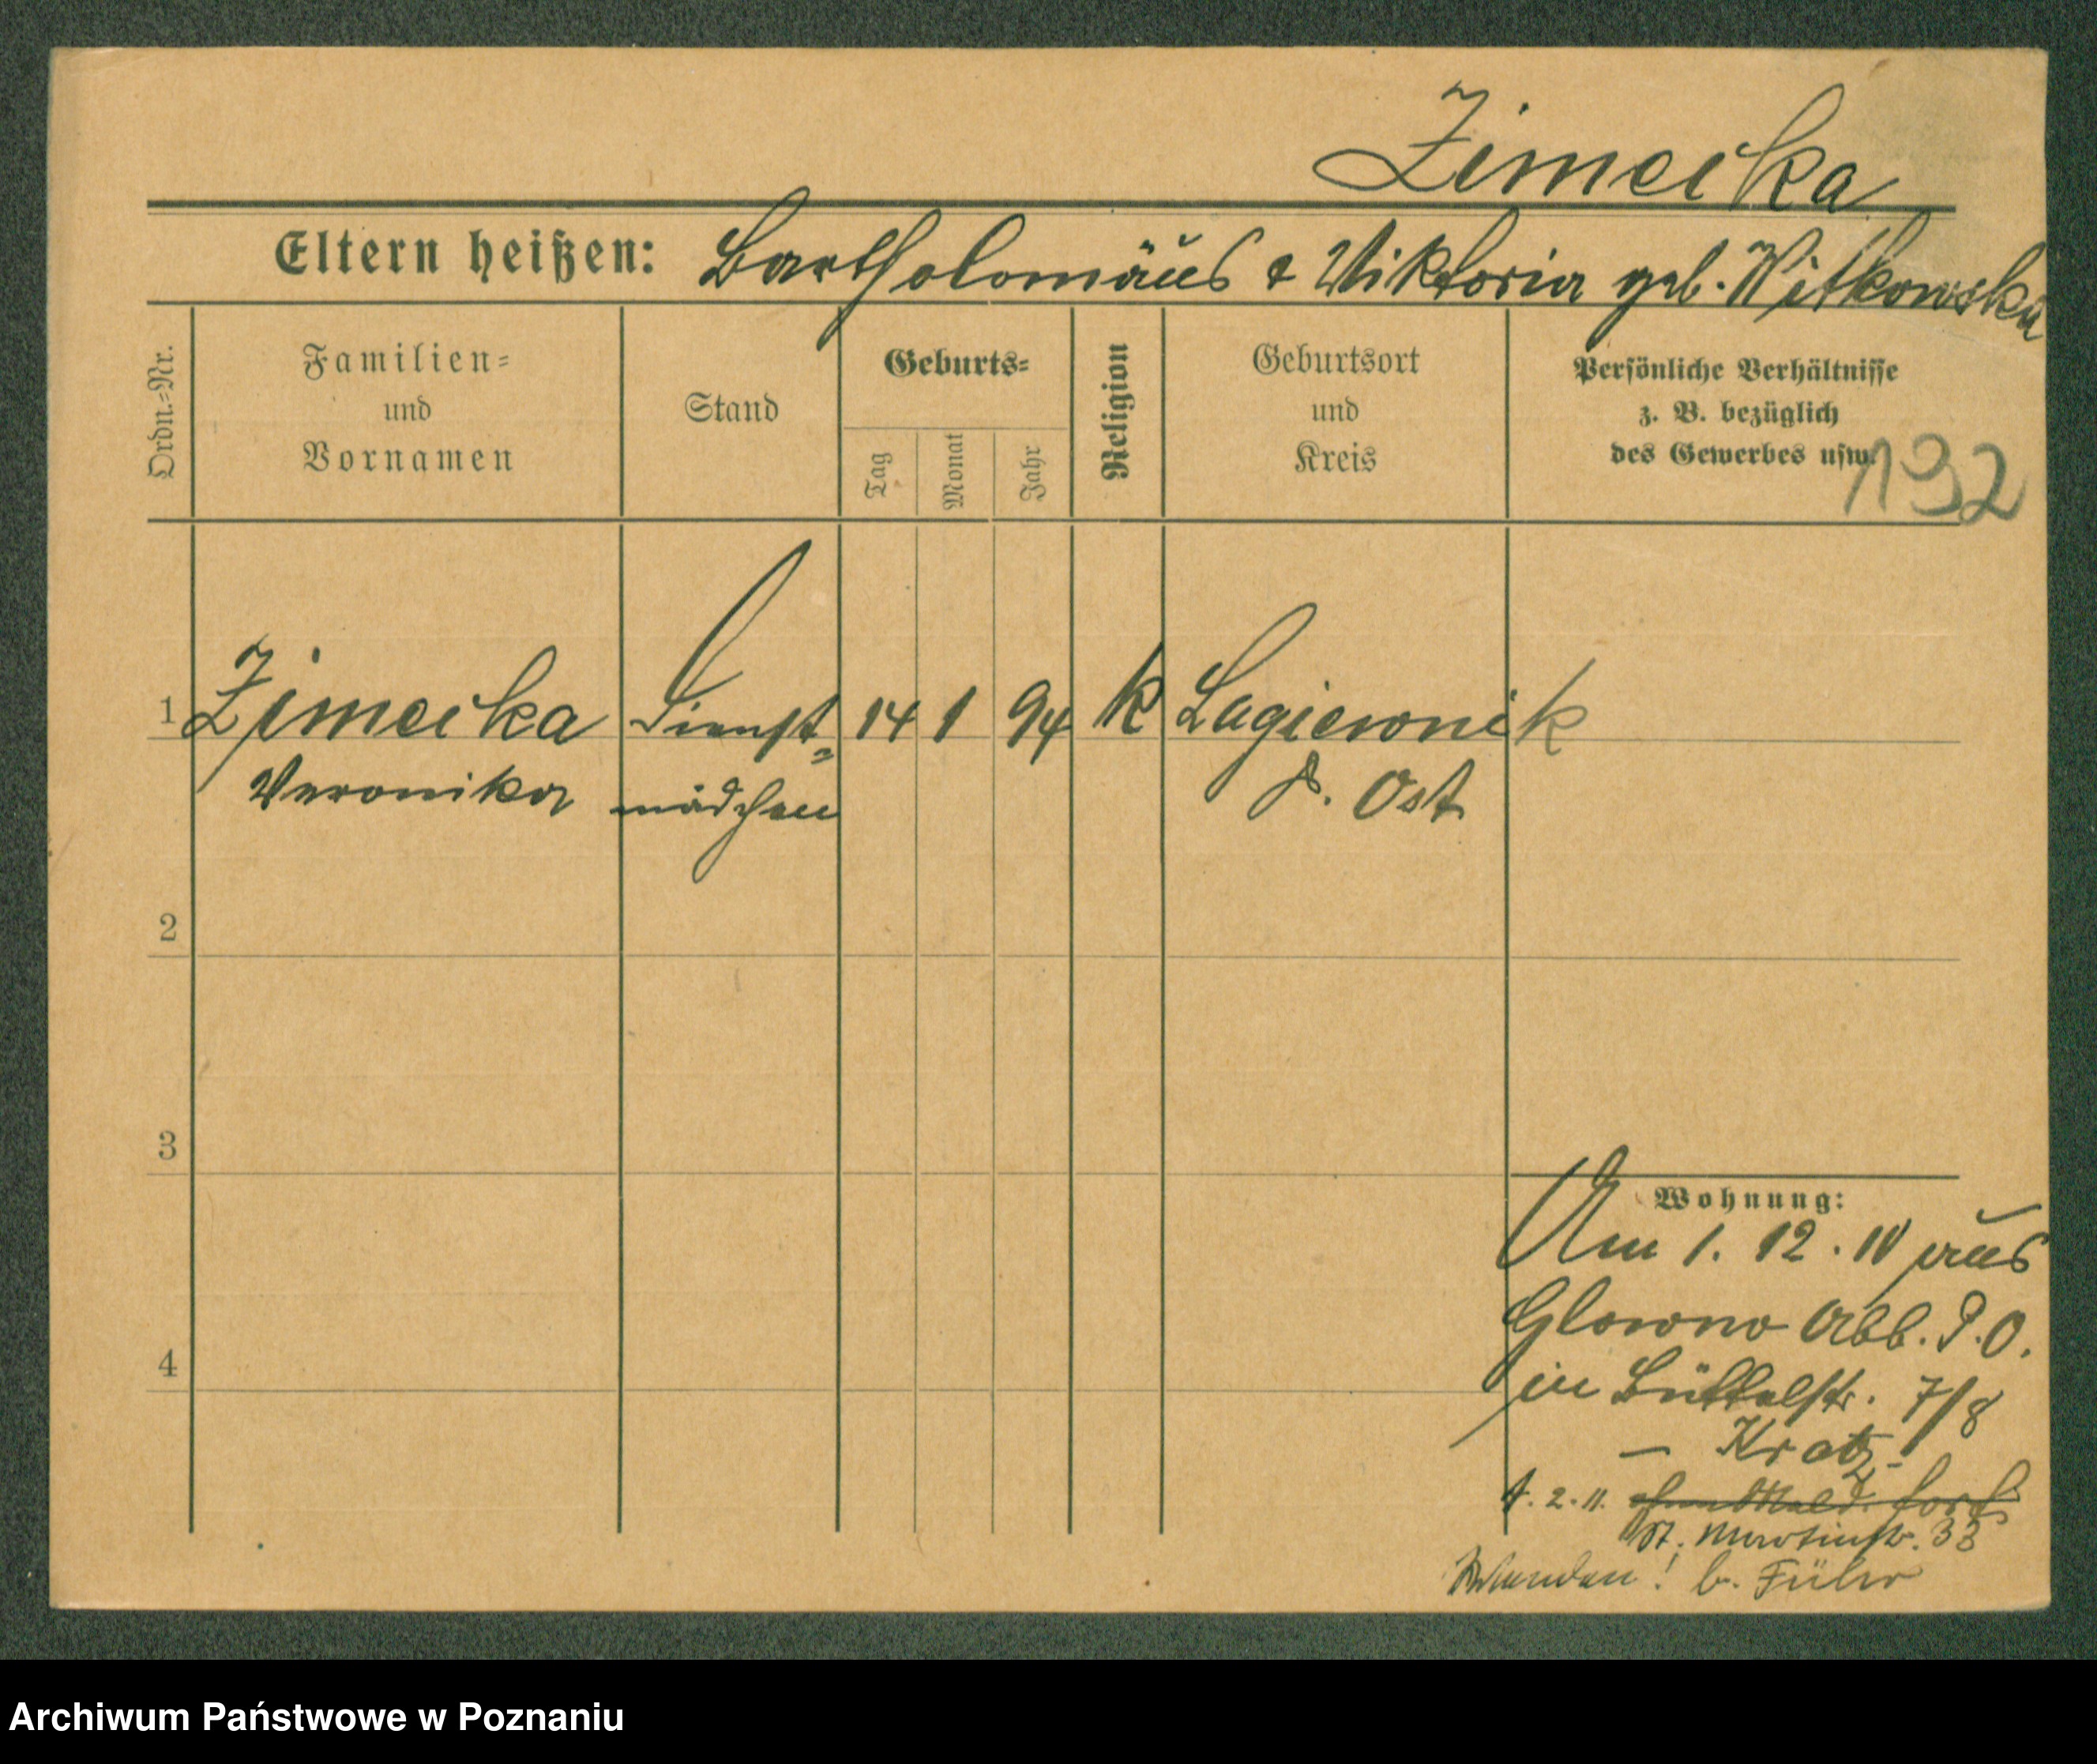 Zimecka
Eltern heißen: Bartholomäus & Viktoria geb. Witkowska
Ordn.-Nr.
Familien-
und
Vornamen
Stand
Geburts-
Tag
Monat
Jahr
Religion
Geburtsort
und
Kreis
Persönliche Verhältnisse
z. B. bezüglich
des Gewerbes usw.
192
1 Zimecka Dienst- 14 1 94 k Lagiewnik
Veronika mädchen P. Ost
2
3
4
Wohnung:
Am 1. 12. 10 aus
Glowno Abb. P.O.
in Büttelstr. 7/8
– Kratz –
1. 2. 11. ohne Meld. fort
St. Martinstr. 33
b. Führ
Archiwum Państwowe w Poznaniu